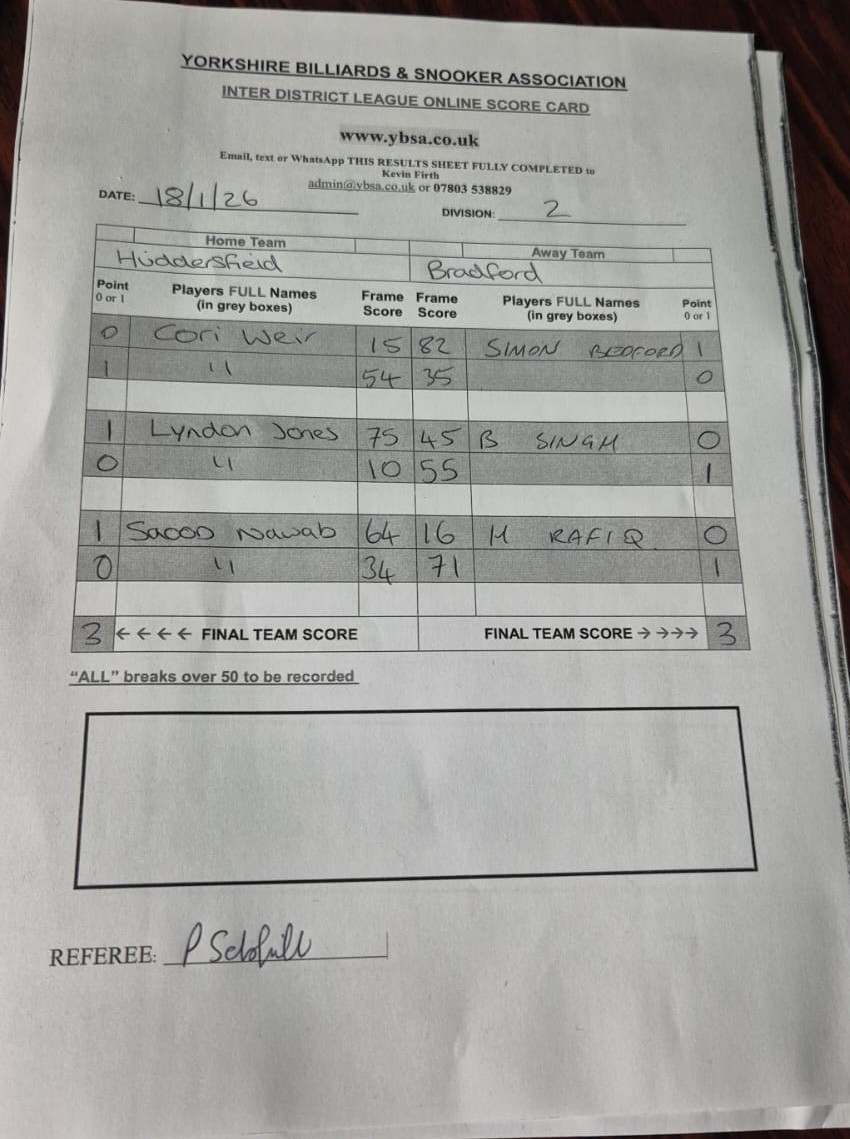 YORKSHIRE BILLIARDS & SNOOKER ASSOCIATION
INTER DISTRICT LEAGUE ONLINE SCORE CARD
www.ybsa.co.uk
Email, text or WhatsApp THIS RESULTS SHEET FULLY COMPLETED to
Kevin Firth
admin@ybsa.co.uk or 07803 538829
DATE: 18/1/26 DIVISION: 2
Home Team Away Team
Huddersfield Bradford
Point 0 or 1 Players FULL Names (in grey boxes) Frame Score Frame Score Players FULL Names (in grey boxes) Point 0 or 1
0 Cori Weir 15 82 SIMON BEDFORD 1
1 " 54 35 0
1 Lyndon Jones 75 45 B SINGH 0
0 " 10 55 1
1 Saood Nawab 64 16 M RAFIQ 0
0 " 34 71 1
3 ←←←← FINAL TEAM SCORE FINAL TEAM SCORE →→→→ 3
"ALL" breaks over 50 to be recorded
REFEREE: P